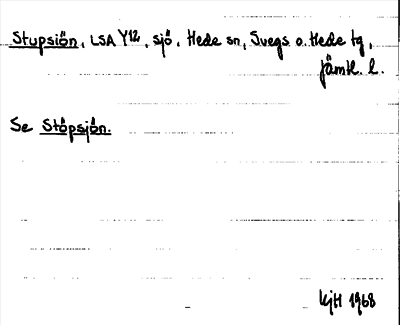 Stupsiön, LSA Y12, sjö, Hede sn, Svegs o. Hede tg,
Jämtl. l.
Se Stöpsjön.
KjH 1968